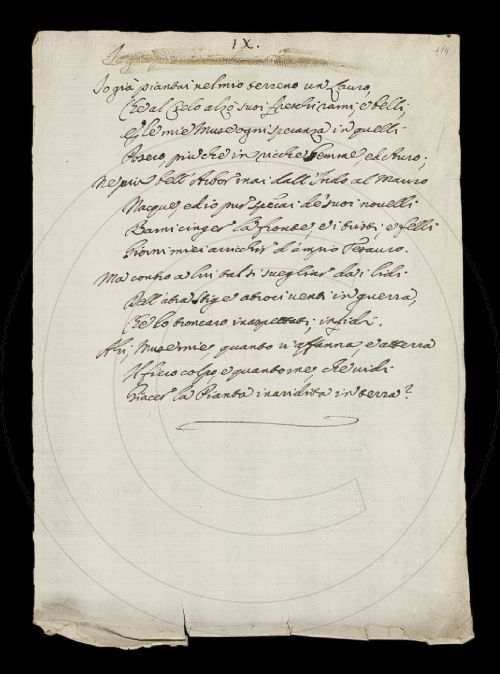 IX.
114
Io già piantai nel mio terreno un Lauro,
Che al Cielo alzò suoi freschi rami, e belli,
e le mie Muse ogni speranza in quelli
Posero, più che in ricche Gemme, ed Auro;
Ne più bell' Arbor mai dall' Indo al Mauro
Nacque, ed io più sperai de' suoi novelli
Rami cinger la fronte, e i tristi, e felli
Giorni miei arricchir d' ampio Tesauro.
Ma contro a lui tal si svegliar da i lidi
Dell' atra Stige atroci venti in guerra,
Che lo troncaro inaspettati, infidi.
Ahi, Muse mie, quanto v' affanna, e atterra
Il fiero colpo, e quanto me, che vidi
Giacer la Pianta inaridita in terra?